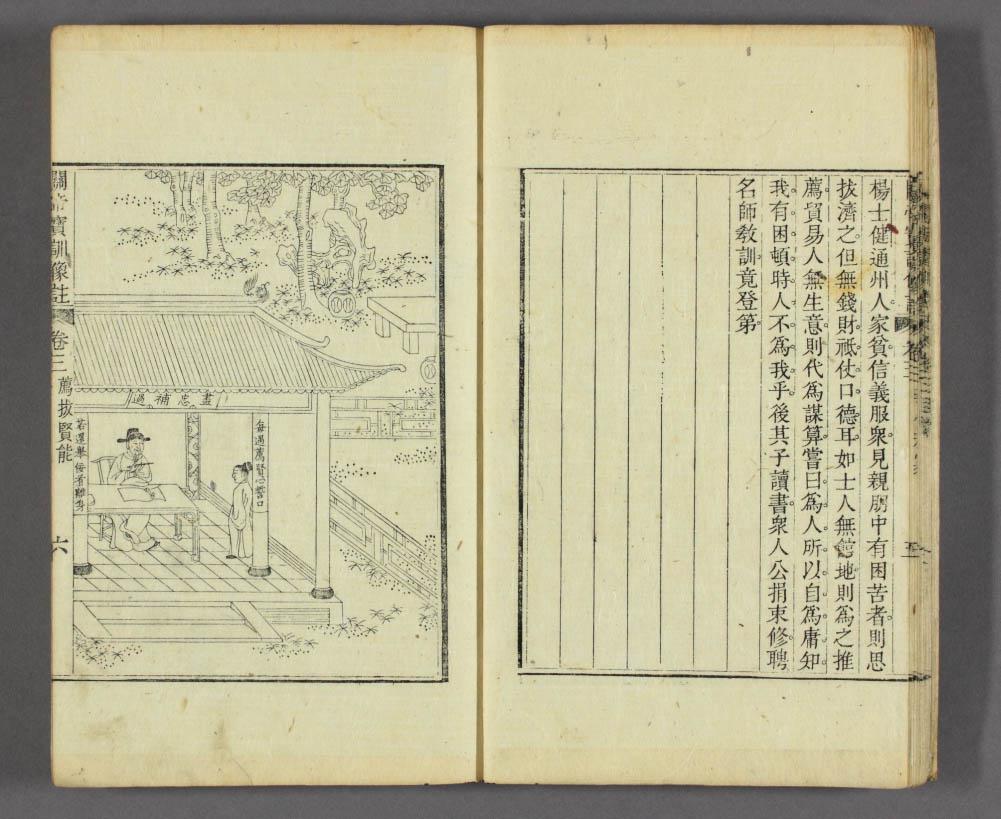 楊士健通州人家貧信義服衆見親朋中有困苦者則思
拔濟之但無錢財祗仗口德耳如士人無館地則爲之推
薦貿易人無生意則代爲謀算嘗曰爲人所以自爲庸知
我有困頓時人不爲我乎後其子讀書衆人公捐束修聘
名師教訓竟登第
盡忠補過
每過薦賢心誓口
若還舉佞看雖身
關帝寶訓像註
卷三
薦拔賢能
六